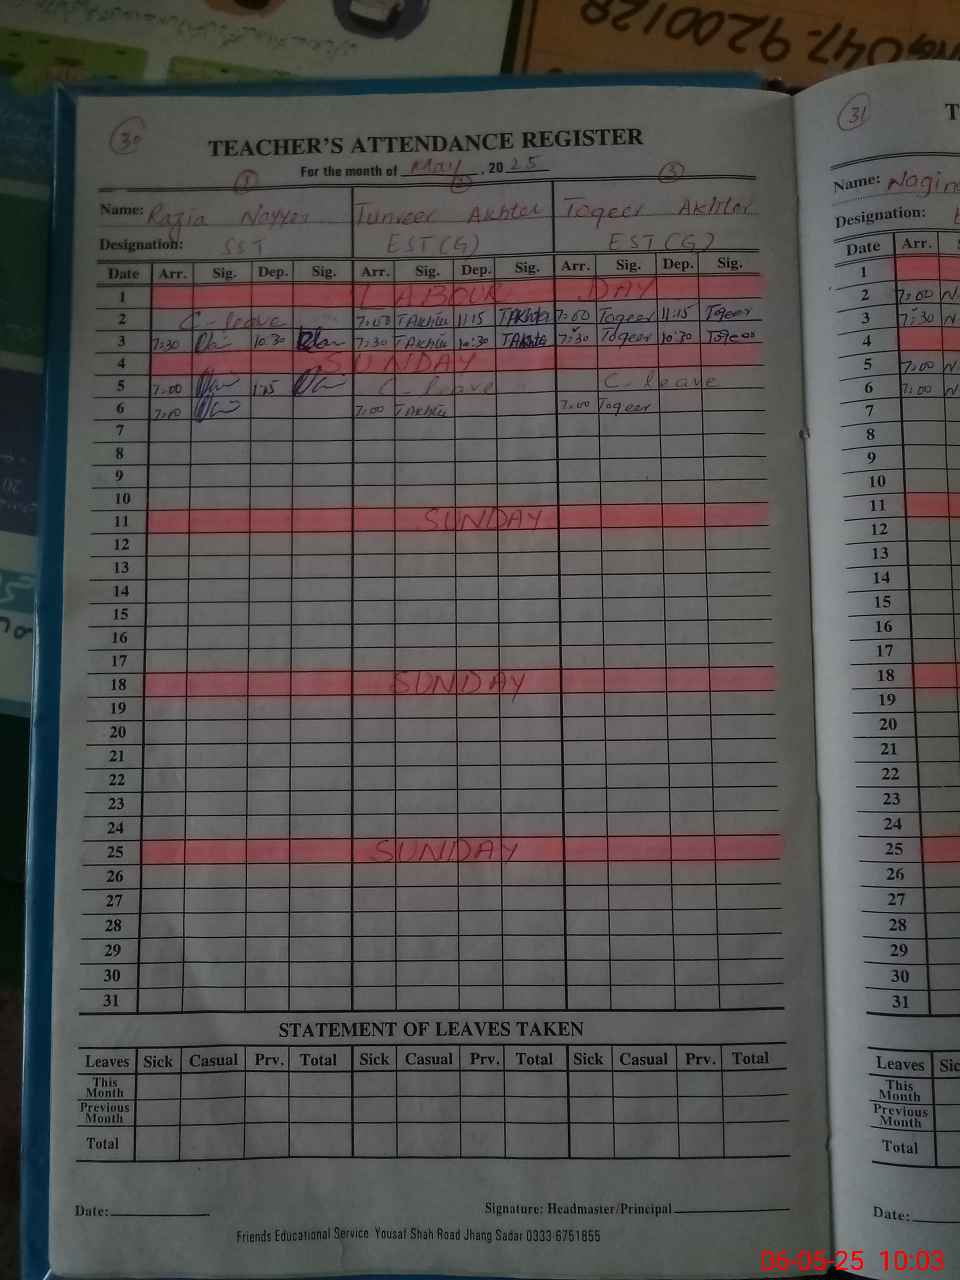 047-9200128
30
TEACHER'S ATTENDANCE REGISTER
For the month of May, 2025
1 2 3
Name: Razia Nayyer Tunveer Akhter Toqeer Akhter
Designation: SST EST (G) EST (G)
Date Arr. Sig. Dep. Sig. Arr. Sig. Dep. Sig. Arr. Sig. Dep. Sig.
1 LABOUR DAY
2 C-leave 7:00 TAkhtu 11:15 TAkhtu 7:00 Toqeer 11:15 Toqeer
3 7:30 10:30 7:30 TAkhtu 10:30 TAkhtu 7:30 Toqeer 10:30 Toqeer
4 SUNDAY
5 7:00 1:15 C-leave C-leave
6 7:00 7:00 TAkhtu 7:00 Toqeer
7
8
9
10
11 SUNDAY
12
13
14
15
16
17
18 SUNDAY
19
20
21
22
23
24
25 SUNDAY
26
27
28
29
30
31
STATEMENT OF LEAVES TAKEN
Leaves Sick Casual Prv. Total Sick Casual Prv. Total Sick Casual Prv. Total
This Month
Previous Month
Total
Date:
Signature: Headmaster/Principal
Friends Educational Service Yousaf Shah Road Jhang Sadar 0333-6751855
31
T
Name: Nagin
Designation:
Date Arr.
1
2 7:00 N
3 7:30 N
4
5 7:00 N
6 7:00 N
7
8
9
10
11
12
13
14
15
16
17
18
19
20
21
22
23
24
25
26
27
28
29
30
31
Leaves Sic
This Month
Previous Month
Total
Date:
06-05-25 10:03